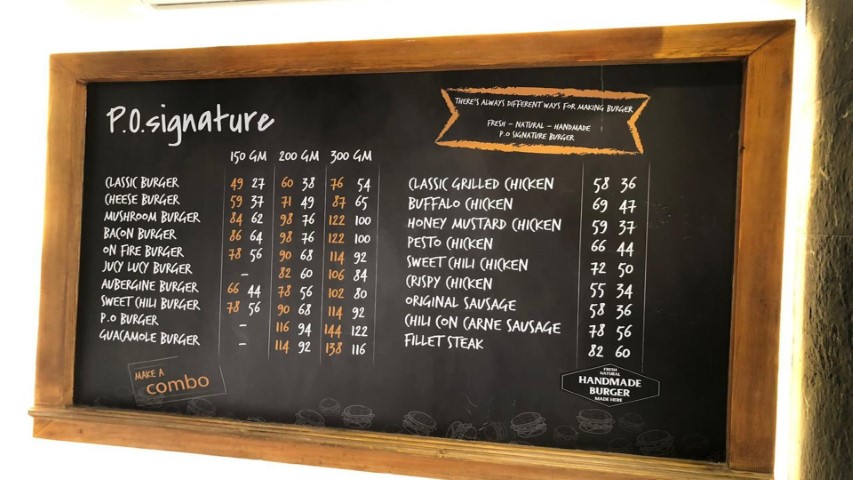 P.O.signature
THERE'S ALWAYS DIFFERENT WAYS FOR MAKING BURGER
FRESH – NATURAL – HANDMADE
P.O SIGNATURE BURGER
150 GM 200 GM 300 GM
CLASSIC BURGER 49 27 60 38 76 54
CHEESE BURGER 59 37 71 49 87 65
MUSHROOM BURGER 84 62 98 76 122 100
BACON BURGER 86 64 98 76 122 100
ON FIRE BURGER 78 56 90 68 114 92
JUCY LUCY BURGER – 82 60 106 84
AUBERGINE BURGER 66 44 78 56 102 80
SWEET CHILI BURGER 78 56 90 68 114 92
P.O BURGER – 116 94 144 122
GUACAMOLE BURGER – 114 92 138 116
CLASSIC GRILLED CHICKEN 58 36
BUFFALO CHICKEN 69 47
HONEY MUSTARD CHICKEN 59 37
PESTO CHICKEN 66 44
SWEET CHILI CHICKEN 72 50
CRISPY CHICKEN 55 34
ORIGINAL SAUSAGE 58 36
CHILI CON CARNE SAUSAGE 78 56
FILLET STEAK 82 60
MAKE A
combo
FRESH
NATURAL
HANDMADE
BURGER
MADE HERE